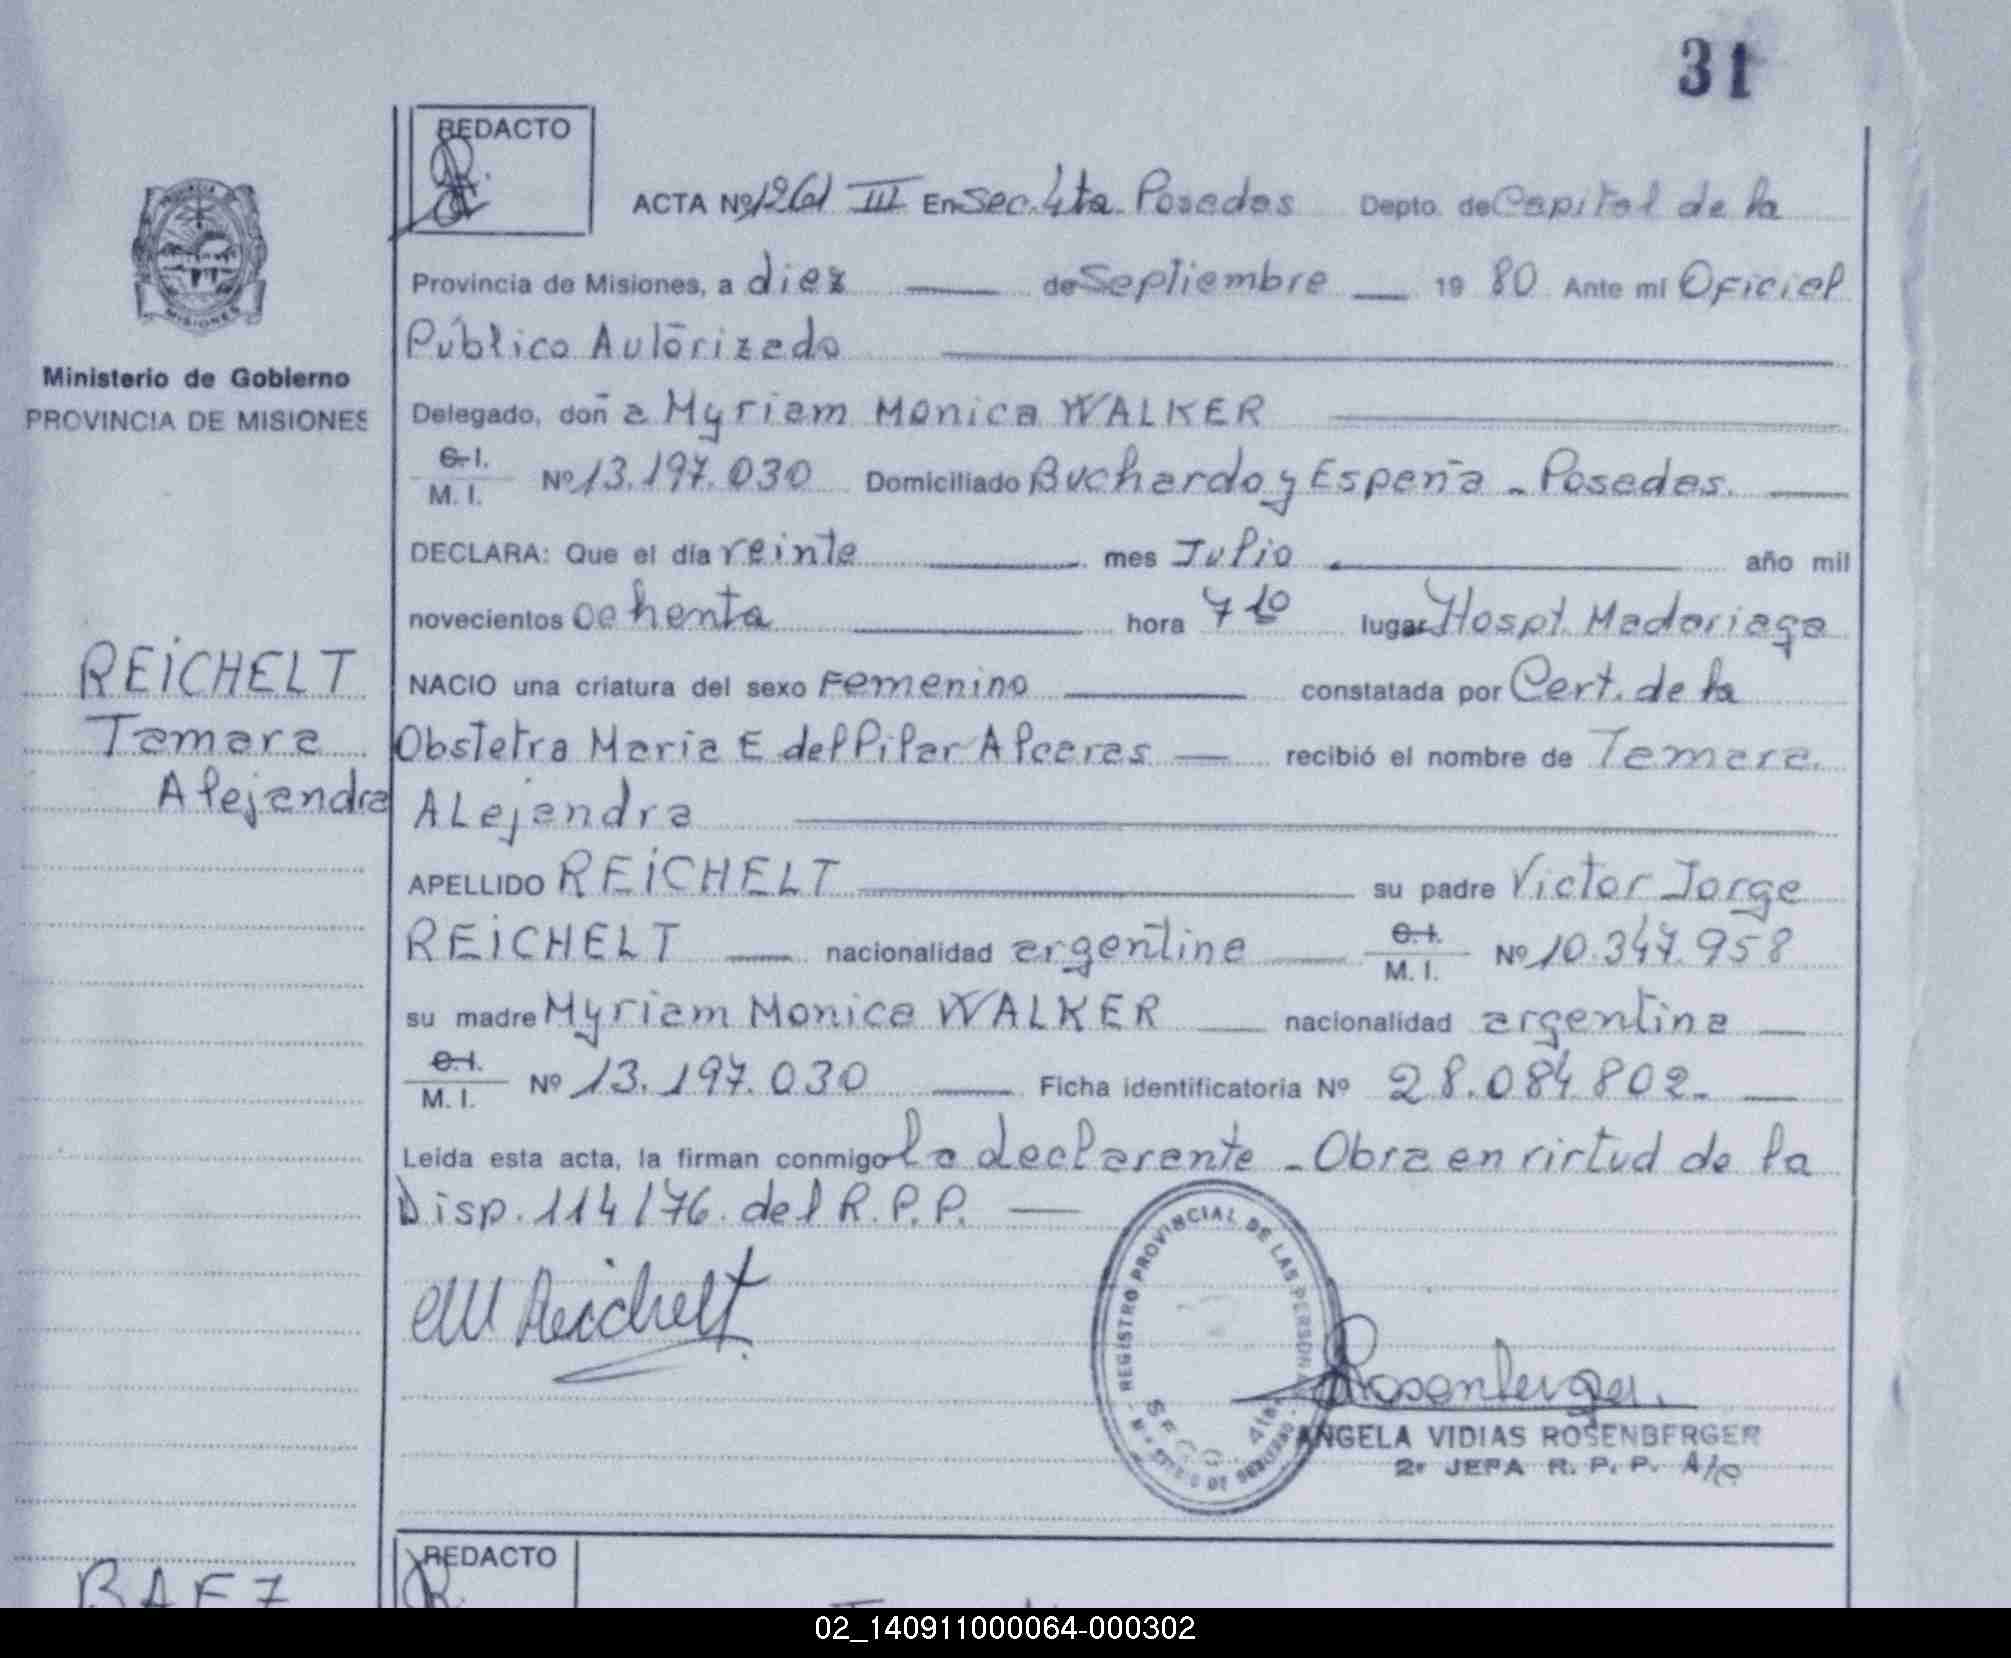 31
REDACTO
ACTA Nº 1261 III En Sec. 4ta. Posadas Depto. de Capital de la
Provincia de Misiones, a diez de Septiembre 1980 Ante mi Oficial
Público Autorizado
Ministerio de Gobierno
PROVINCIA DE MISIONES
Delegado, doña Myriam Monica WALKER
C. I.
M. I. Nº 13.197.030 Domiciliado Buchardo y España - Posadas.
DECLARA: Que el día veinte mes Julio año mil
novecientos ochenta hora 7 10 lugar Hospt. Madariaga
REICHELT
Tamara
Alejandra
NACIO una criatura del sexo Femenino constatada por Cert. de la
Obstetra Maria E del Pilar Alcaras recibió el nombre de Tamara
ALejandra
APELLIDO REICHELT su padre Victor Jorge
REICHELT nacionalidad argentina C. I.
M. I. Nº 10.347.958
su madre Myriam Monica WALKER nacionalidad argentina
C. I.
M. I. Nº 13.197.030 Ficha identificatoria Nº 28.084.802.
Leída esta acta, la firman conmigo la declarente - Obra en virtud de la
Disp. 114/76. del R.P.P.
MM Reichelt
REGISTRO PROVINCIAL DE LAS PERSONAS
Rosenberger
ANGELA VIDIAS ROSENBERGER
2º JEFA R. P. P. A/c
REDACTO
BAEZ
02_140911000064-000302